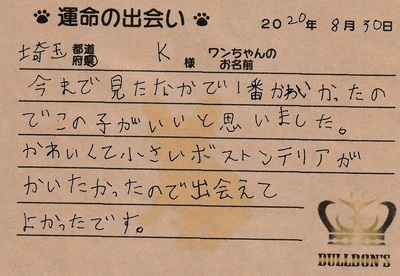 運命の出会い 2020年 8月30日
埼玉 都道府県 K 様 ワンちゃんのお名前
今まで見たなかで1番かわいかったの
でこの子がいいと思いました。
かわいくて小さいボストンテリアが
かいたかったので出会えて
よかったです。
BULLDON'S